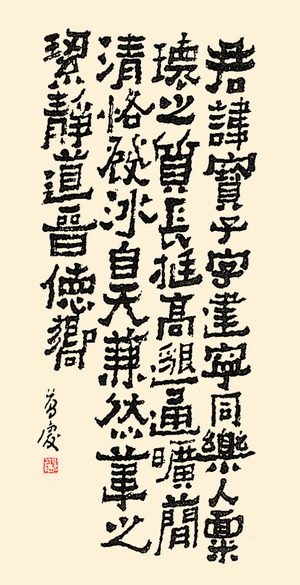 君諱寶子字建寧同樂人稟
瓌之質長挺高邈通曠簡
清恪發冰自天兼然葦之
絜靜道晉德嚮